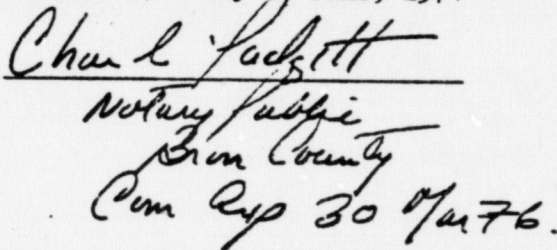 Charl Padgett
Notary Public
County
Com Exp 30 Mar 76.